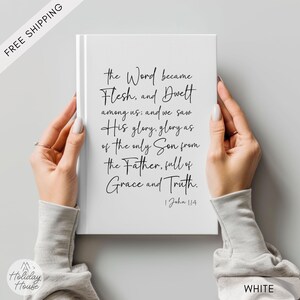 FREE SHIPPING
the Word became
Flesh, and Dwelt
among us, and we saw
His glory, glory as
of the only Son from
the Father, full of
Grace and Truth.
1 John 1:14
Holiday
House
WHITE